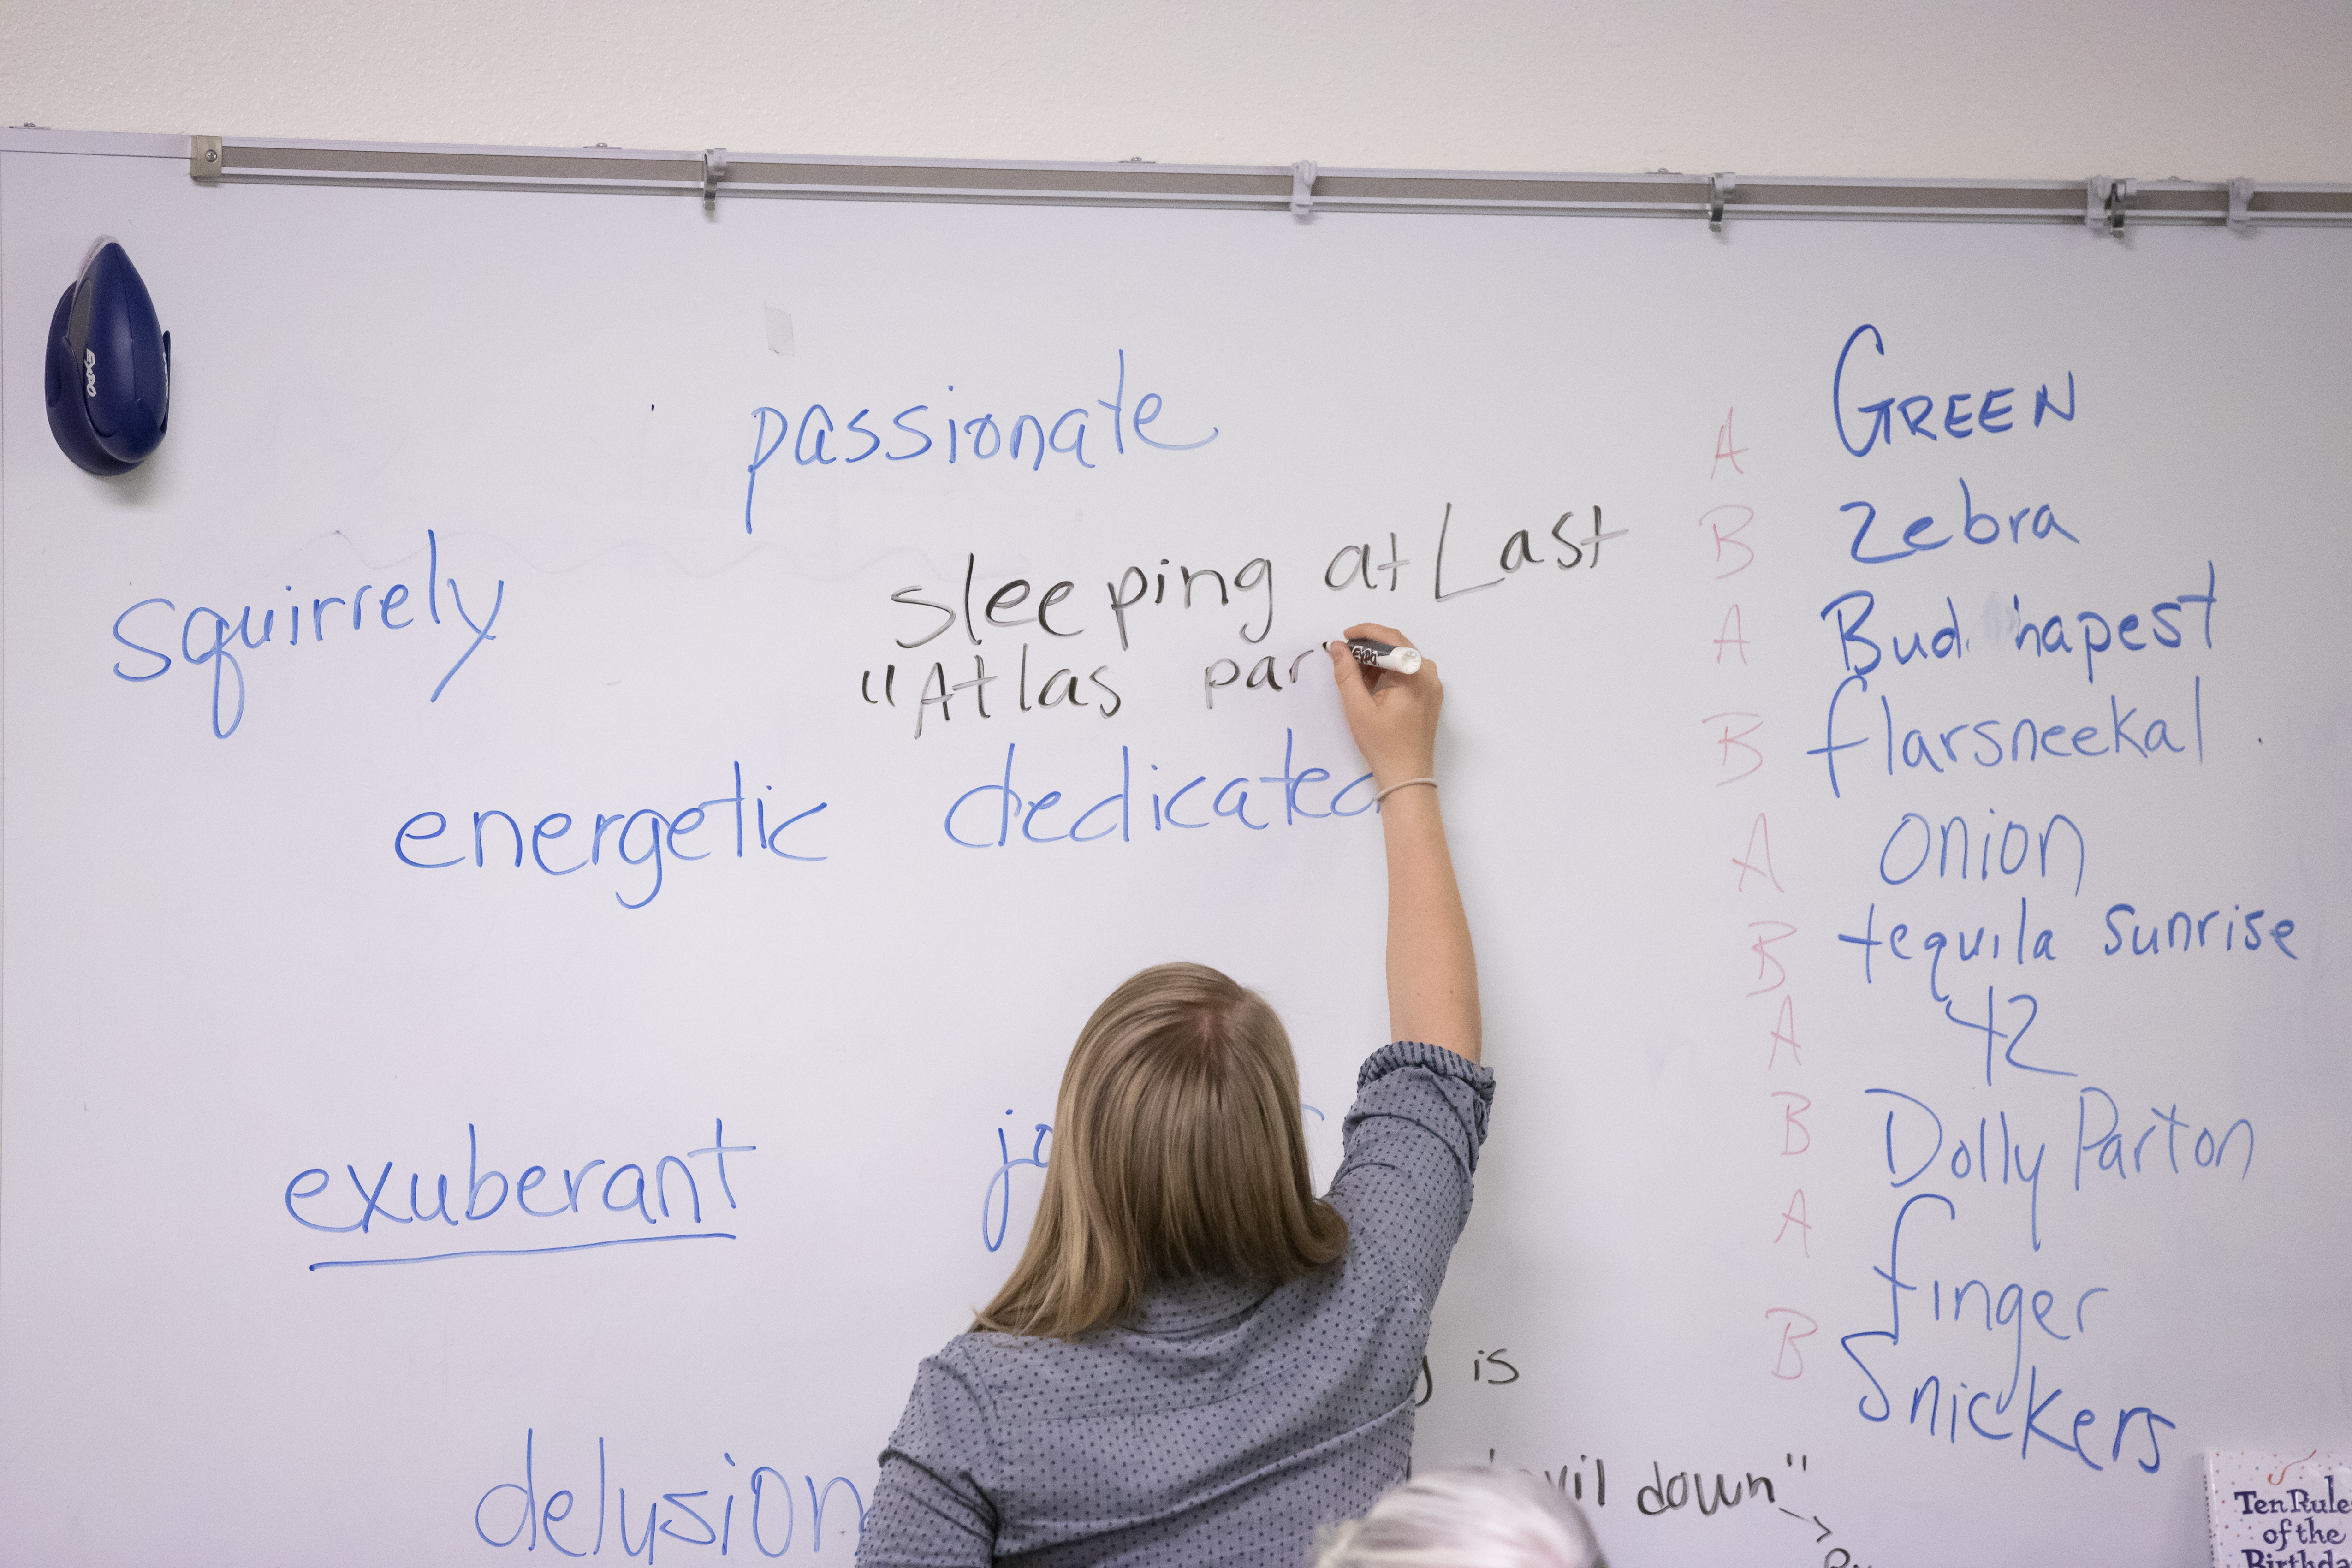 EXPO
passionate
squirrely
Sleeping at Last
"Atlas par
EXPO
energetic dedicated
exuberant
delusion
is
down"
A GREEN
B Zebra
A Bud hapest
B flarsneekal
A onion
B tequila sunrise
A 42
B Dolly Parton
A finger
B Snickers
Ten Rule
of the
Birthda